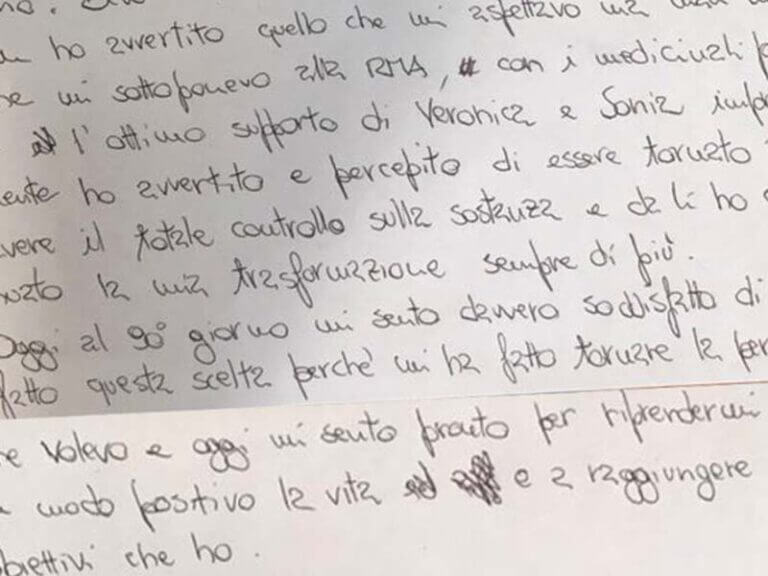 ho avvertito quello che mi aspettavo ma
mi sottoponevo alla RMA, con i medicinali
l'ottimo supporto di Veronica e Sonia
ente ho avvertito e percepito di essere tornato
vere il totale controllo sulla sostanza e da lì ho
la mia trasformazione sempre di più.
Oggi al 90° giorno mi sento davvero soddisfatto di
fatto questa scelta perchè mi ha fatto tornare la per
e volevo e oggi mi sento pronto per riprendermi
modo positivo la vita e a raggiungere
biettivi che ho.